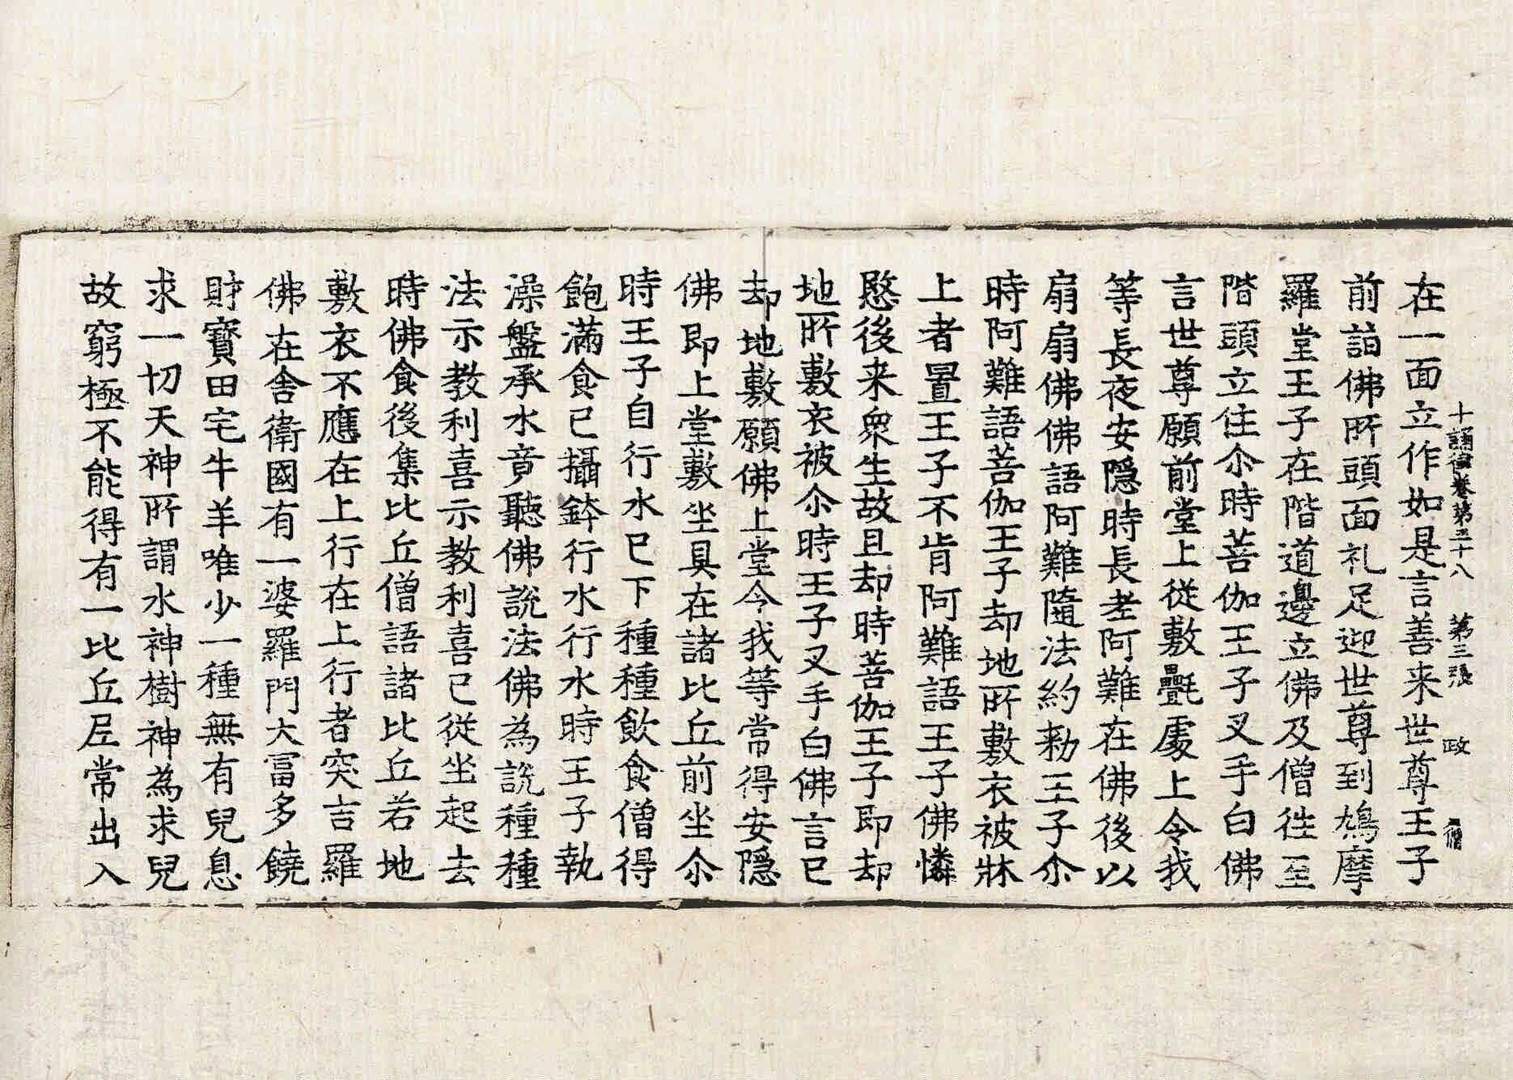 十誦律卷第五十八 第三張 政
在一面立作如是言善来世尊王子
前詣佛所頭面礼足迎世尊到鳩摩
羅堂王子在階道邊立佛及僧徃至
階頭立住尒時菩伽王子叉手白佛
言世尊願前堂上從敷氎處上令我
等長夜安隱時長老阿難在佛後以
扇扇佛佛語阿難隨法約勑王子尒
時阿難語菩伽王子却地所敷衣被牀
上者置王子不肯阿難語王子佛憐
愍後来衆生故且却時菩伽王子即却
地所敷衣被尒時王子叉手白佛言已
却地敷願佛上堂令我等常得安隱
佛即上堂敷坐具在諸比丘前坐尒
時王子自行水已下種種飲食僧得
飽滿食已攝鉢行水行水時王子執
澡盤承水竟聽佛說法佛為說種種
法示教利喜示教利喜已從坐起去
時佛食後集比丘僧語諸比丘若地
敷衣不應在上行在上行者突吉羅
佛在舍衛國有一婆羅門大富多饒
財寶田宅牛羊唯少一種無有兒息
求一切天神所謂水神樹神為求兒
故窮極不能得有一比丘尼常出入